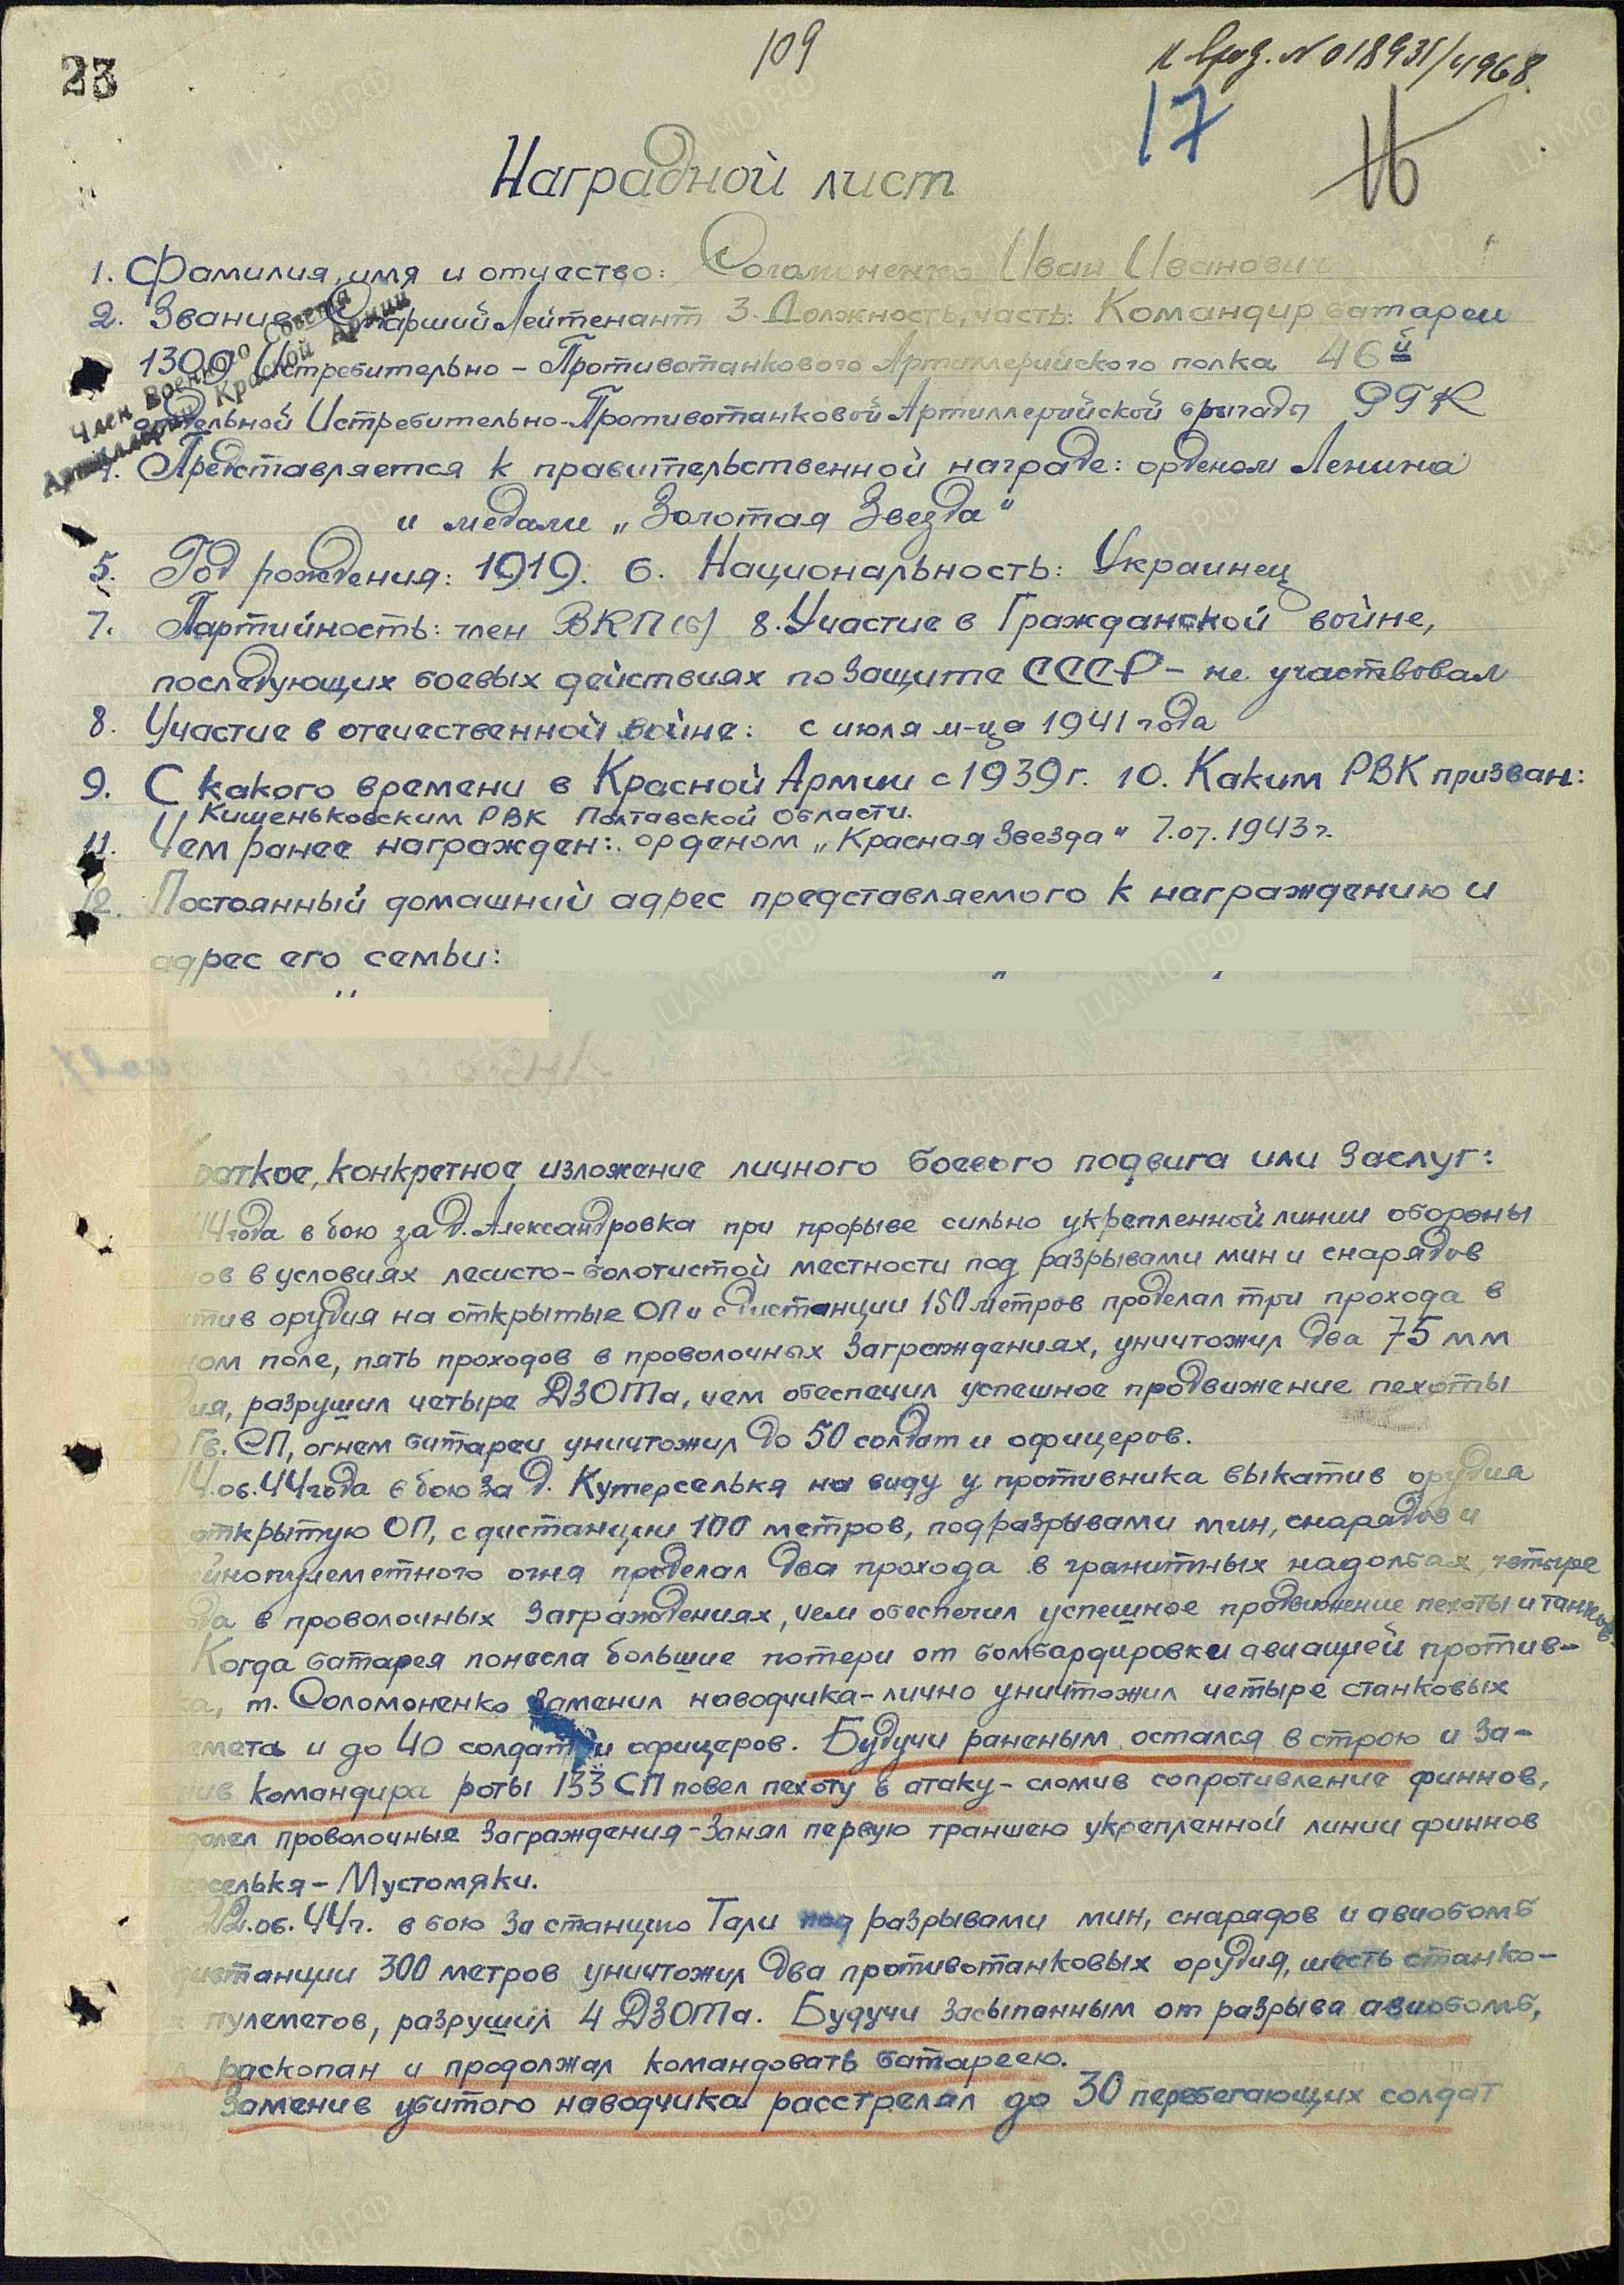 23
109
к вход. N 018931/4968
17
16
Наградной лист
1. Фамилия, имя и отчество: Соломоненко Иван Иванови
2. Звание: Старший Лейтенант 3. Должность, часть: Командир батареи
1300 Истребительно-Противотанкового Артиллерийского полка 46й
отдельной Истребительно-Противотанковой Артиллерийской бригады РГК
Член Военного Совета
Артиллерии Красной Армии
4. Представляется к правительственной награде: орденом Ленина
и медали „Золотая Звезда"
5. Год рождения: 1919. 6. Национальность: Украинец
7. Партийность: член ВКП(б) 8. Участие в Гражданской войне,
последующих боевых действиях по защите СССР - не участвовал
8. Участие в отечественной войне: с июля м-ца 1941 года
9. С какого времени в Красной Армии с 1939 г. 10. Каким РВК призван:
Кишеньковским РВК Полтавской области.
11. Чем ранее награжден: орденом „Красная Звезда" 7.07.1943 г.
12. Постоянный домашний адрес представляемого к награждению и
адрес его семьи:
раткое, конкретное изложение личного боевого подвига или заслуг:
44 года в бою за д. Александровка при прорыве сильно укрепленной линии обороны
ов в условиях лесисто-болотистой местности под разрывами мин и снарядов
тив орудия на открытые ОП и с дистанции 150 метров проделал три прохода в
ном поле, пять проходов в проволочных заграждениях, уничтожил два 75 мм
ия, разрушил четыре ДЗОТа, чем обеспечил успешное продвижение пехоты
Гв. СП, огнем батареи уничтожил до 50 солдат и офицеров.
14.06.44 года в бою за д. Кутерселькя на виду у противника выкатив орудия
открытую ОП, с дистанции 100 метров, под разрывами мин, снарядов и
йнопулеметного огня проделал два прохода в гранитных надолбах, четыре
да в проволочных заграждениях, чем обеспечил успешное продвижение пехоты и танков
Когда батарея понесла большие потери от бомбардировки авиацией против-
ка, т. Соломоненко заменил наводчика - лично уничтожил четыре станковых
емета и до 40 солдат и офицеров. Будучи раненым остался в строю и за-
нив командира роты 133 СП повел пехоту в атаку - сломив сопротивление финнов,
долел проволочные заграждения - занял первую траншею укрепленной линии финнов
рселькя - Мустомяки.
22.06.44 г. в бою за станцию Тали под разрывами мин, снарядов и авиобомб
дистанции 300 метров уничтожил два противотанковых орудия, шесть станко-
х пулеметов, разрушил 4 ДЗОТа. Будучи засыпанным от разрыва авиобомб,
л раскопан и продолжал командовать батареею.
Заменив убитого наводчика расстрелял до 30 перебегающих солдат